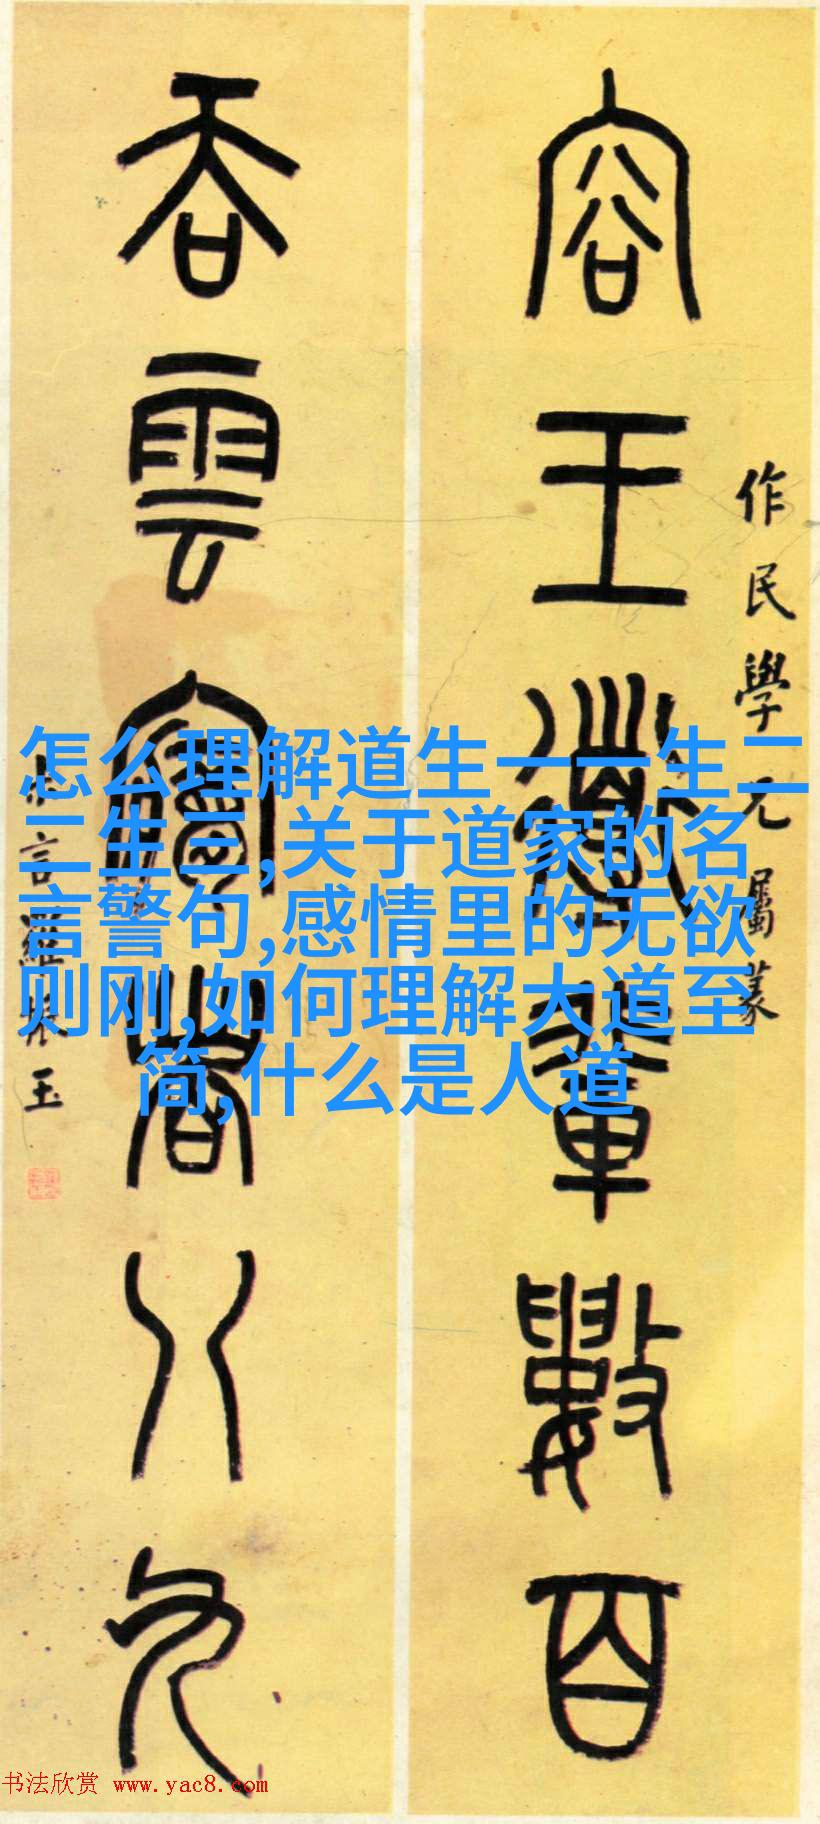 作民學兄屬篆
容王輩數百
吞雲夢者八九
言羅振玉
怎么理解道生一一生二
二生三,关于道家的名
言警句,感情里的无欲
则刚,如何理解大道至
简,什么是人道
书法欣赏 www.yac8.com